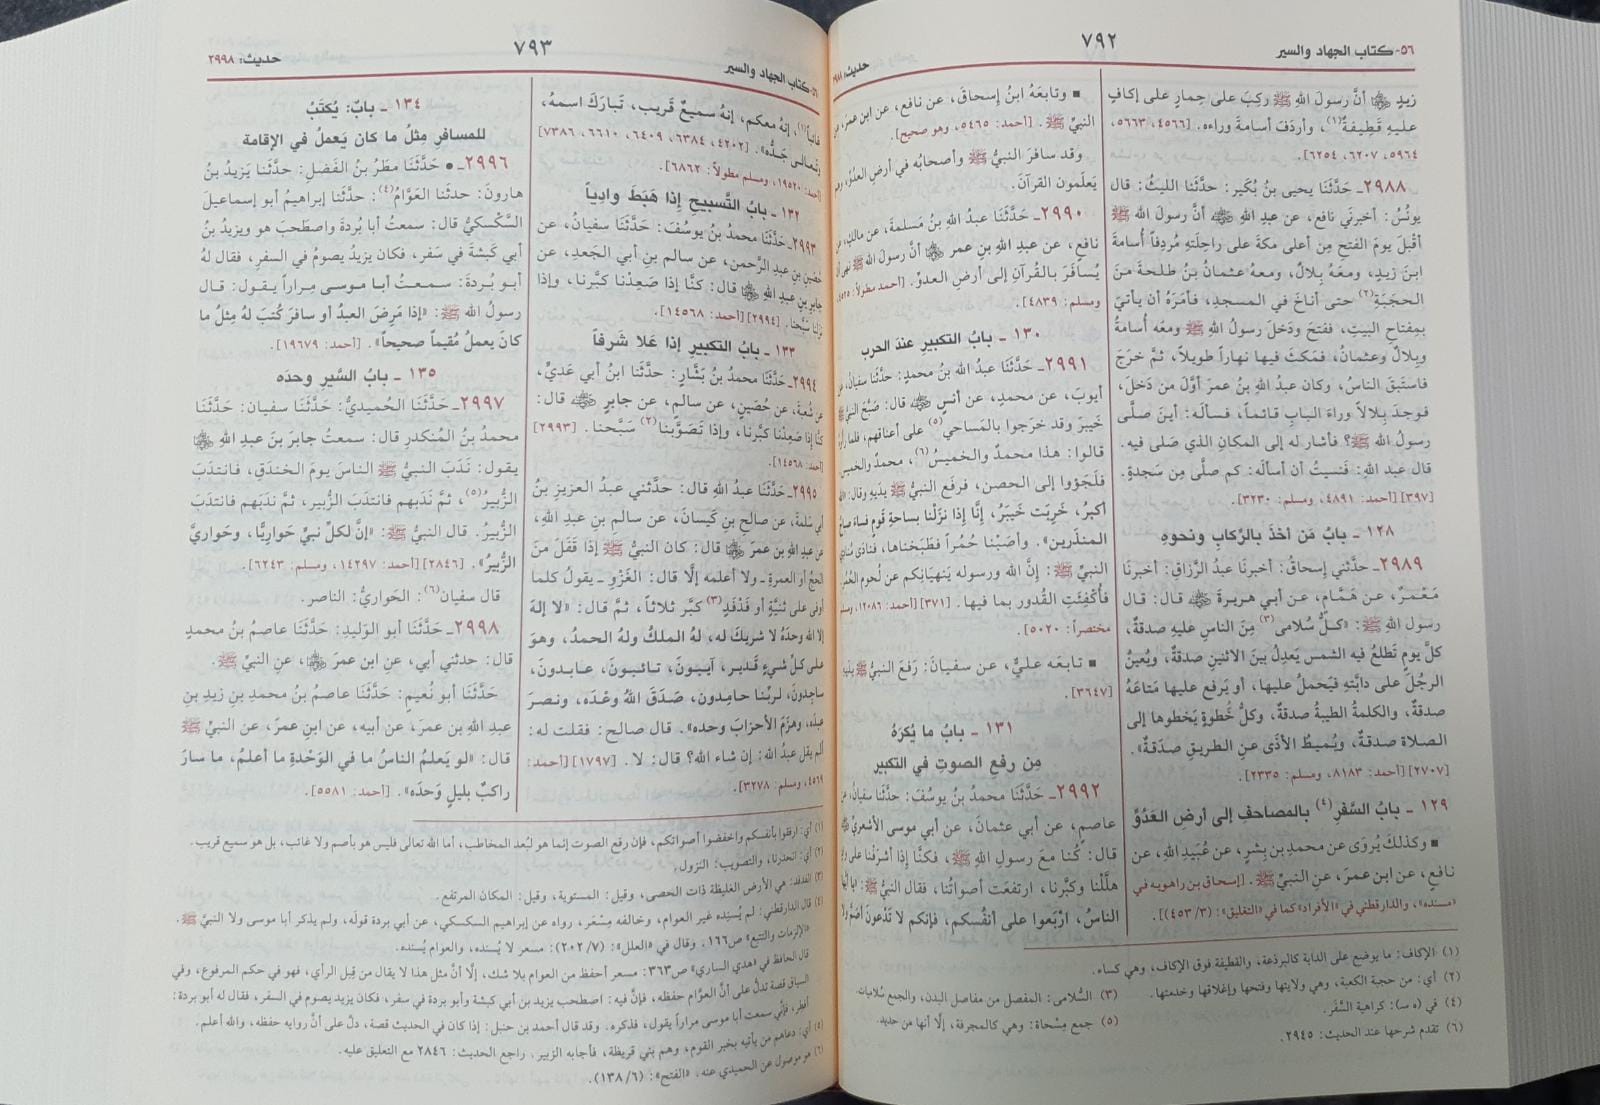 ٥٦- كتاب الجهاد والسير
٧٩٢
حديث: ٢٩٨٨
زيدٍ ﷺ أنَّ رسولَ اللهِ ﷺ ركِبَ على حِمارٍ على إكافٍ
عليهِ قَطِيفةٌ(١)، وأردَفَ أسامةَ وراءه. [٤٥٦٦، ٥٦٦٣،
٥٩٦٤، ٦٢٠٧، ٦٢٥٤].
٢٩٨٨ـ حَدَّثَنَا يحيى بنُ بُكَيرٍ: حدَّثَنا الليثُ: قال
يونُسُ: أخبرَني نافع، عن عبدِ اللهِ ﷺ أنَّ رسولَ اللهِ ﷺ
أقْبَلَ يومَ الفتحِ مِن أعلى مكةَ على راحِلَتهِ مُردِفاً أسامةَ
ابنَ زيدٍ، ومعَهُ بِلالٌ، ومعهُ عثمانُ بنُ طلحةَ منَ
الحجَبَةِ(٢) حتى أناخَ في المسجدِ، فأمَرَهُ أن يأتيَ
بمِفتاحِ البيتِ، ففتحَ ودَخلَ رسولُ اللهِ ﷺ ومعَه أسامةُ
وبِلالٌ وعثمانُ، فمَكثَ فيها نهاراً طويلاً، ثمَّ خرَجَ
فاستَبقَ الناسُ، وكان عبدُ اللهِ بنُ عمرَ أوَّلَ من دَخلَ،
فوجدَ بِلالاً وراءَ البابِ قائماً، فسألَه: أينَ صلَّى
رسولُ اللهِ ﷺ؟ فأشارَ له إلى المكانِ الذي صَلى فيه.
قال عبدُ اللهِ: فنَسيتُ أن أسألَه: كم صلَّى مِن سَجدةٍ.
[٣٩٧] [أحمد: ٤٨٩١، ومسلم: ٣٢٣٠].
١٢٨ ـ بابُ مَن أخَذَ بالرِّكابِ ونحوِهِ
٢٩٨٩ـ حَدَّثني إسحاقُ: أخبرَنا عبدُ الرَّزاقِ: أخبرَنا
مَعْمَرٌ، عن هَمَّامٍ، عن أبي هريرةَ ﷺ قال: قال
رسول اللهِ ﷺ: «كلُّ سُلامى(٣) مِنَ الناسِ عليهِ صدقةٌ،
كلَّ يومٍ تَطلعُ فيه الشمس يَعدِلُ بينَ الاثنَينِ صدقةٌ، ويُعينُ
الرجُلَ على دابَّتهِ فيَحملُ عليها، أو يَرفع عليها مَتاعَهُ
صدقةٌ، والكلمةُ الطيبةُ صدقةٌ، وكلُّ خُطوةٍ يَخطوها إلى
الصلاة صدقةٌ، ويُميطُ الأذَى عنِ الطريقِ صدَقةٌ».
[٢٧٠٧] [أحمد: ٨١٨٣، ومسلم: ٢٣٣٥].
١٢٩ ـ بابُ السَّفَرِ(٤) بالمصاحفِ إلى أرضِ العَدُوِّ
■ وكذلكَ يُروَى عن محمدِ بنِ بِشرٍ، عن عُبَيدِ اللهِ، عن
نافعٍ، عن ابن عمرَ، عنِ النبيِّ ﷺ. [إسحاق بن راهويه في
«مسنده»، والدارقطني في «الأفراد» كما في «التغليق»: (٤٥٣/٣)].
■ وتابعَهُ ابنُ إسحاقَ، عن نافعٍ، عن ابن عمرَ، عن
النبيِّ ﷺ. [أحمد: ٥٤٦٥، وهو صحيح].
وقد سافرَ النبيُّ ﷺ وأصحابُه في أرضِ العدُوِّ، وهم
يَعلَمون القرآنَ.
٢٩٩٠ـ حَدَّثَنَا عبدُ اللهِ بنُ مَسلمةَ، عن مالكٍ، عن
نافعٍ، عن عبدِ اللهِ بنِ عمرَ ﷺ أنَّ رسولَ اللهِ ﷺ نهى أن
يُسافَرَ بالقُرآنِ إلى أرضِ العدوِّ. [أحمد مطولاً: ٤٥٢٥،
ومسلم: ٤٨٣٩].
١٣٠ ـ بابُ التكبيرِ عندَ الحربِ
٢٩٩١ـ حَدَّثَنَا عبدُ اللهِ بنُ محمدٍ: حدَّثَنا سفيانُ، عن
أيوبَ، عن محمدٍ، عن أنسٍ ﷺ قال: صَبَّحَ النبيُّ ﷺ
خَيبرَ وقد خرَجوا بالمَساحي(٥) على أعناقِهم، فلما رأَوْهُ
قالوا: هذا محمدٌ والخميسُ(٦)، محمدٌ والخميسُ
فلَجَؤوا إلى الحصنِ، فرفَع النبيُّ ﷺ يدَيهِ وقال: «اللهُ
أكبرُ، خَرِبَت خَيبَرُ، إنَّا إذا نزَلْنا بساحةِ قومٍ فساءَ صباحُ
المنذَرين». وأصَبْنا حُمُراً فطَبَخناها، فنادَى مُنادي
النبيِّ ﷺ: إنَّ اللهَ ورسوله يَنهيَانِكم عن لُحومِ الحُمُرِ
فأُكْفِئَتِ القُدورِ بما فيها. [٣٧١] [أحمد: ١٢٠٨٦، ومسلم
مختصراً: ٥٠٢٠].
■ تابعَه عليٌّ، عن سفيانَ: رَفعَ النبيُّ ﷺ يدَيهِ.
[٣٦٤٧].
١٣١ ـ بابُ ما يُكرَهُ
مِن رفعِ الصوتِ في التكبيرِ
٢٩٩٢ـ حَدَّثَنَا محمدُ بنُ يوسُفَ: حدَّثَنا سفيانُ، عن
عاصمٍ، عن أبي عثمانَ، عن أبي موسى الأشعريِّ ﷺ
قال: كُنا معَ رسولِ اللهِ ﷺ، فكنَّا إذا أشرَفْنا على وادٍ
هلَّلْنا وكبَّرنا، ارتفعَت أصواتُنا، فقال النبيُّ ﷺ: «يا أيُّها
الناسُ، ارْبَعوا على أنفُسِكم، فإنكم لا تَدْعونَ أصَمَّ ولا
(١) الإكاف: ما يوضع على الدابة كالبرذعة، والقطيفة فوق الإكاف، وهي كساء.
(٢) أي: من حجبة الكعبة، وهي ولايتها وفتحها وإغلاقها وخدمتها.
(٣) السُّلامى: المفصل من مفاصل البدن، والجمع سُلاميات.
(٤) في (ه س): كراهية السَّفَر.
(٥) جمع مِسْحاة: وهي كالمجرفة، إلَّا أنها من حديد.
(٦) تقدم شرحها عند الحديث: ٢٩٤٥.
٥٦- كتاب الجهاد والسير
٧٩٣
حديث: ٢٩٩٨
غائباً(١)، إنهُ معكم، إنهُ سميعٌ قَريب، تَبارَكَ اسمهُ،
وتَعالى جَدُّه». [٤٢٠٢، ٦٣٨٤، ٦٤٠٩، ٦٦١٠، ٧٣٨٦]
[أحمد: ١٩٥٢٠، ومسلم مطولاً: ٦٨٦٢].
١٣٢ ـ بابُ التَّسبيحِ إذا هَبَطَ وادِياً
٢٩٩٣ـ حَدَّثَنَا محمدُ بنُ يوسُفَ: حدَّثَنا سفيانُ، عن
حُصَينِ بنِ عبدِ الرَّحمنِ، عن سالمِ بنِ أبي الجَعدِ، عن
جابرِ بنِ عبدِ اللهِ ﷺ قال: كنَّا إذا صَعِدْنا كبَّرنا، وإذا
نزَلْنا سَبَّحنا. [٢٩٩٤] [أحمد: ١٤٥٦٨].
١٣٣ ـ بابُ التكبيرِ إذا عَلا شَرفاً
٢٩٩٤ـ حَدَّثَنَا محمدُ بنُ بَشَّارٍ: حدَّثَنا ابنُ أبي عَديٍّ،
عن شُعبةَ، عن حُصَينٍ، عن سالمٍ، عن جابرٍ ﷺ قال:
كنَّا إذا صَعِدْنا كبَّرنا، وإذا تَصَوَّبنا(٢) سَبَّحنا. [٢٩٩٣]
[أحمد: ١٤٥٦٨].
٢٩٩٥ـ حَدَّثَنَا عبدُ اللهِ قال: حدَّثَني عبدُ العزيزِ بنُ
أبي سَلَمةَ، عن صالحِ بنِ كَيسانَ، عن سالمِ بنِ عبدِ اللهِ،
عن عبدِ اللهِ بن عمرَ ﷺ قال: كان النبيُّ ﷺ إذا قَفَلَ منَ
الحجِّ أوِ العمرةِ ـ ولا أعلمه إلَّا قال: الغَزْوِ ـ يقولُ كلما
أوفَى على ثَنِيَّةٍ أو فَدْفَدٍ(٣) كبَّر ثلاثاً، ثمَّ قال: «لا إلهَ
إلا اللهُ وحدَهُ لا شريكَ له، لهُ الملكُ ولهُ الحمدُ، وهوَ
على كلِّ شيءٍ قَدير، آيِبونَ، تائبونَ، عابدونَ،
ساجِدونَ، لربِّنا حامِدون، صَدَقَ اللهُ وعْدَه، ونصرَ
عبدَه، وهزَمَ الأحزابَ وحده». قال صالح: فقلت له:
ألم يقل عبدُ اللهِ: إن شاء الله؟ قال: لا. [١٧٩٧] [أحمد:
٤٥٦٩، ومسلم: ٣٢٧٨].
١٣٤ ـ بابٌ: يُكتَبُ
للمسافرِ مِثلُ ما كان يَعملُ في الإقامة
٢٩٩٦ـ ● حَدَّثَنَا مطَرُ بنُ الفَضلِ: حدَّثَنا يَزيدُ بنُ
هارونَ: حدثَنا العَوَّامُ(٤): حدَّثَنا إبراهيمُ أبو إسماعيلَ
السَّكْسكيُّ قال: سمعتُ أبا بُردةَ واصطَحبَ هو ويزيدُ بنُ
أبي كَبشةَ في سَفرٍ، فكان يزيدُ يصومُ في السفرِ، فقال لهُ
أبو بُردةَ: سمعتُ أبا موسى مِراراً يقول: قال
رسولُ اللهِ ﷺ: «إذا مَرِضَ العبدُ أو سافرَ كُتبَ لهُ مِثلُ ما
كان يعملُ مُقيماً صحيحاً». [أحمد: ١٩٦٧٩].
١٣٥ ـ بابُ السَّيرِ وحدَه
٢٩٩٧ـ حَدَّثَنَا الحُميديُّ: حدَّثَنا سفيان: حدَّثَنا
محمدُ بنُ المنكدرِ قال: سمعتُ جابرَ بنَ عبدِ اللهِ ﷺ
يقول: نَدَبَ النبيُّ ﷺ الناسَ يومَ الخندَقِ، فانتدَبَ
الزُّبيرُ(٥)، ثمَّ نَدَبهم فانتدَبَ الزُّبير، ثمَّ نَدَبهم فانتَدَبَ
الزُّبيرُ. قال النبيُّ ﷺ: «إنَّ لكلِّ نبيٍّ حَوارِيًّا، وحَواريَّ
الزُّبيرُ». [٢٨٤٦] [أحمد: ١٤٢٩٧، ومسلم: ٦٢٤٣].
قال سفيان(٦): الحَواريُّ: الناصر.
٢٩٩٨ـ حَدَّثَنَا أبو الوَليدِ: حدَّثَنَا عاصمُ بنُ محمدٍ
قال: حدثني أبي، عنِ ابن عمرَ ﷺ، عنِ النبيِّ ﷺ.
حَدَّثَنَا أبو نُعيمٍ: حَدَّثَنا عاصمُ بنُ محمدِ بنِ زيدِ بنِ
عبدِ اللهِ بن عمرَ، عن أبيه، عنِ ابنِ عمرَ، عنِ النبيِّ ﷺ
قال: «لو يَعلمُ الناسُ ما في الوَحْدةِ ما أعلمُ، ما سارَ
راكبٌ بليلٍ وَحدَه». [أحمد: ٥٥٨١].
(١) أي: ارفقوا بأنفسكم واخفضوا أصواتكم، فإن رفع الصوت إنما هو لبُعد المخاطب، أما الله تعالى فليس هو بأصم ولا غائب، بل هو سميع قريب.
(٢) أي: انحدرنا، والتصويب: النزول.
(٣) الفدفد: هي الأرض الغليظة ذات الحصى، وقيل: المستوية، وقيل: المكان المرتفع.
(٤) قال الدارقطني: لم يُسنِده غير العوام، وخالفه مِسْعَر، رواه عن إبراهيم السكسكي، عن أبي بردة قولَه، ولم يذكر أبا موسى ولا النبيَّ ﷺ.
«الإلزمات والتتبع» ص١٦٦. وقال في «العلل»: (٢٠٢/٧): مسعر لا يُسنده، والعوام يُسنده.
قال الحافظ في «هدي الساري» ص٣٦٣: مسعر أحفظ من العوام بلا شك، إلَّا أنَّ مثل هذا لا يقال من قِبل الرأي، فهو في حكم المرفوع، وفي
السياق قصة تدلُّ على أنَّ العوَّام حفظه، فإنَّ فيه: اصطحب يزيد بن أبي كبشة وأبو بردة في سفر، فكان يزيد يصوم في السفر، فقال له أبو بردة:
أفطِر، فإنِّي سمعت أبا موسى مراراً يقول، فذكره. وقد قال أحمد بن حنبل: إذا كان في الحديث قصة، دلَّ على أنَّ راويه حفظه، والله أعلم.
(٥) أي: دعاهم من يأتيه بخبر القوم، وهم بني قريظة، فأجابه الزبير. راجع الحديث: ٢٨٤٦ مع التعليق عليه.
(٦) هو موصول عن الحميدي عنه. «الفتح»: (١٣٨/٦).